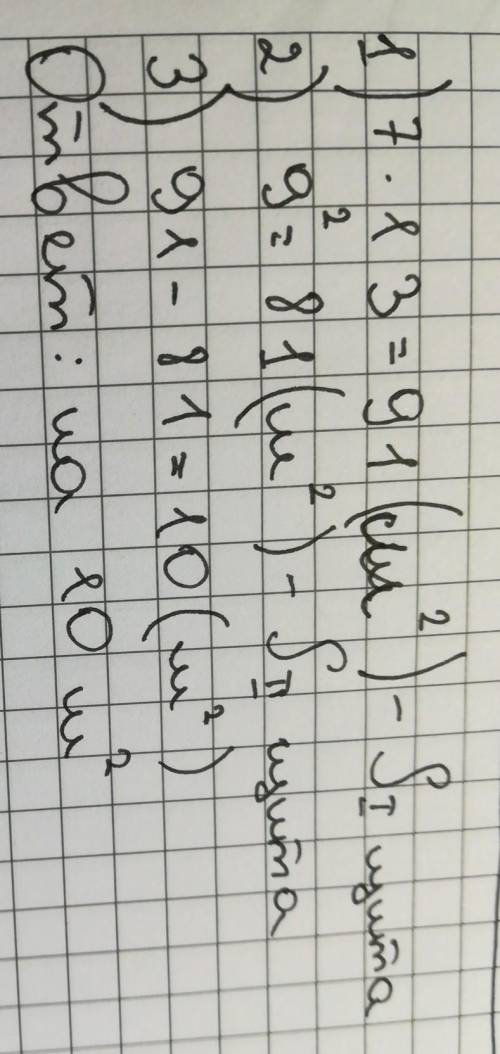 1) 7 · 13 = 91 (м²) - S I щита
2) 9² = 81 (м²) - S II щита
3) 91 - 81 = 10 (м²)
Ответ: на 10 м²